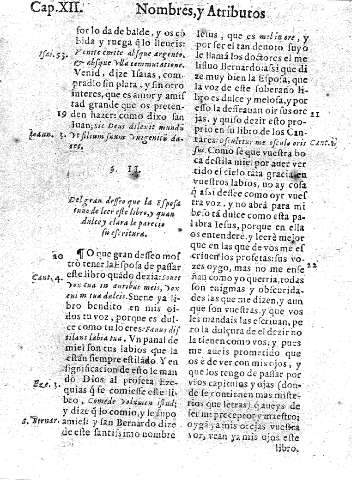 Cap. XII.
Nombres, y Atributos
for lo da de balde, y os cõ
bida y ruega q̃ lo lleueis:
Isai. 53.
Venite emite absque argento,
& absque vlla commutatione.
Venid, dize Isaias, com-
pradlo sin plata, y sin otro
interes, que es amor y amis
tad grande que os preten-
den hazer: como dixo san
19
Ioann. 3.
Iuan: Sic Deus dilexit mundũ
vt filium suum vnigenitũ da-
ret.
§. II.
Del gran desseo que la Esposa
tuuo de leer este libro, y quan
dulce y clara le parecio
su escritura.
20
¶ O que gran desseo mos
trò tener la Esposa de passar
Cant. 4.
este libro quãdo dezia: Sonet
vox tua in auribus meis, vox
enim tua dulcis. Suene ya li-
bro bendito en mis oi-
dos tu voz, porque es dul-
ce como tu lo eres: Fauus dis
tilans labia tua. Vn panal de
miel son tus labios que la
estàn siempre estilãdo. Y en
significacion de esto le man
dò Dios al profeta Eze-
Eze. 3.
quias q̃ se comiesse este li-
bro, Comede volumen istud;
y dize q̃ lo comio, y le supo
S. Bernar.
a miel: y san Bernardo dize
de este santissimo nombre
Iesus, que es mel in ore, y
por ser el tan denoto suyo
le llama los doctores el me
lifluo Bernardo: assi que di
ze muy bien la Esposa, que
la voz de este soberano li-
bro es dulce y melosa, y por
esso la desseauan oir sus ore
21
jas, y quiso dezir esto pro-
prio en su libro de los Can-
tares: osculetur me osculo oris
CANT.
suo. Como sè que vuestra bo
ca destila miel: por auer ver
tido el cielo tãta gracia en
vuestros labios, no ay cosa
q̃ assi dessee como oyr vues
tra voz, y no abrà para mi
libro tã dulce como esta pa-
labra Iesus, porque en ella
os entenderè, y leerè mejor
que en las que de vos me es
criuen los profetas: sus vo-
22
zes oygo, mas no me ense-
ñan como yo querria, todas
son enigmas y obscurida-
des las que me dizen, y aun
que son vuestras, y que vos
les mandais las escriuan, pe
ro la dulçura de el dezir no
la tienen como vos, y pues
me aueis prometido que
os è de ver con mis ojos, y
que los tengo de passar por
vios capitulos y ojas (don-
de se contienen mas miste-
rios que letras) q̃ aueys de
ser mi preceptor y maestro;
oyga ya mis orejas vuestra
voz, vean ya mis ojos este
libro.